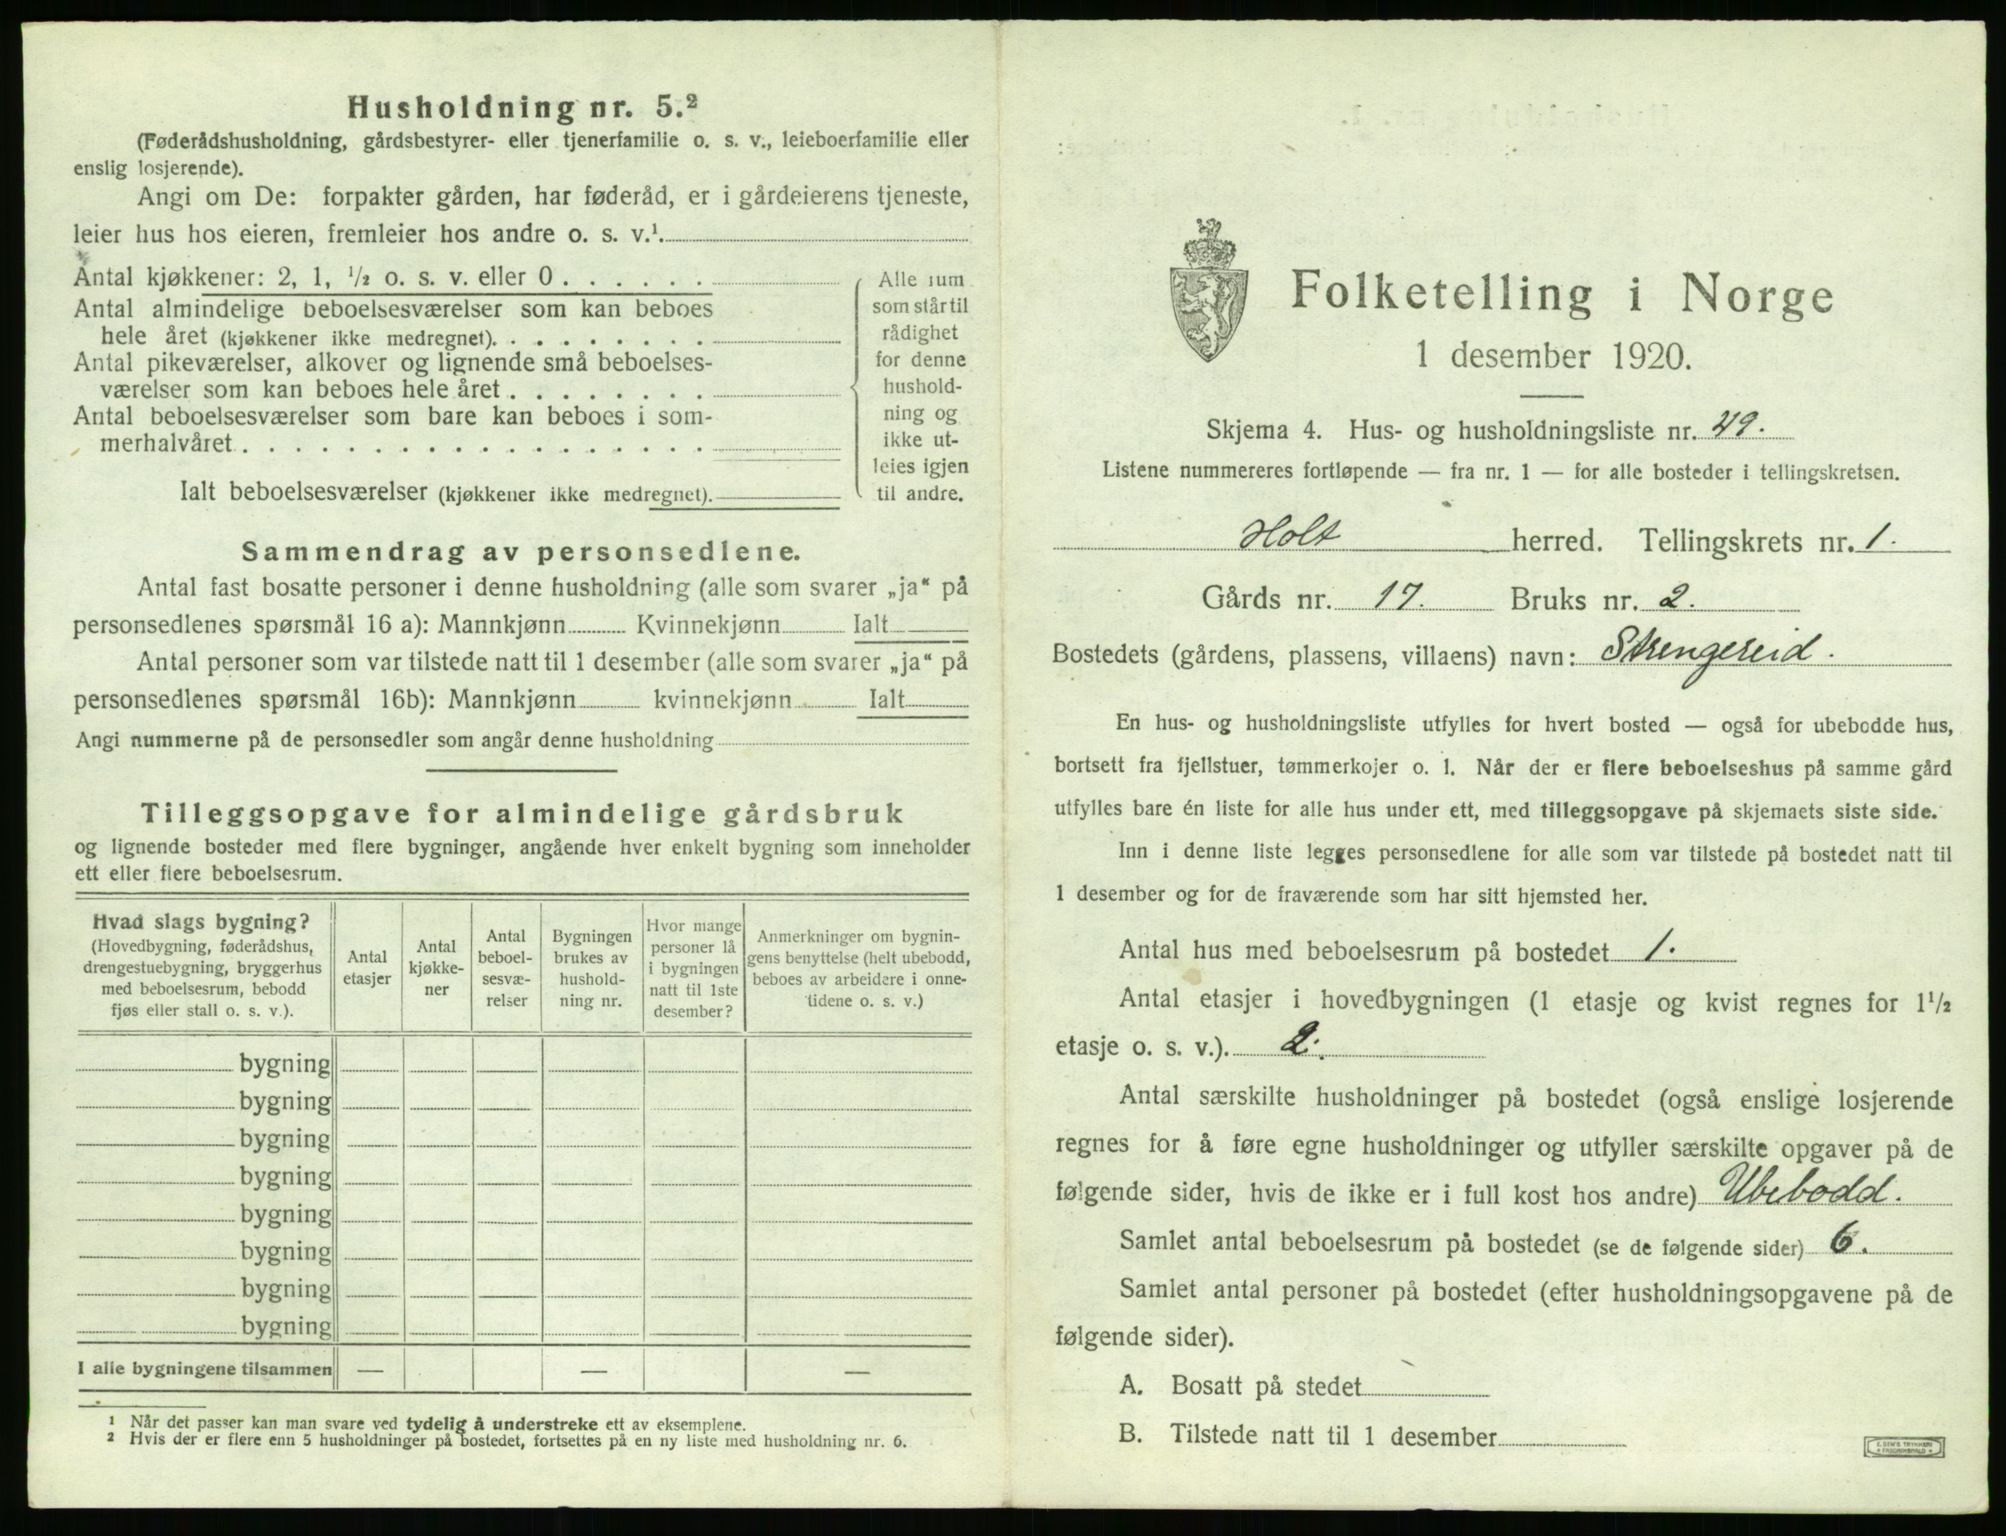 Husholdning nr. 5.²
(Føderådshusholdning, gårdsbestyrer- eller tjenerfamilie o. s. v., leieboerfamilie eller
enslig losjerende).
Angi om De: forpakter gården, har føderåd, er i gårdeierens tjeneste,
leier hus hos eieren, fremleier hos andre o. s. v.¹.
Antal kjøkkener: 2, 1, ¹/₂ o. s. v. eller 0 . . . . . .
Antal almindelige beboelsesværelser som kan beboes
hele året (kjøkkener ikke medregnet). . . . . . . . .
Antal pikeværelser, alkover og lignende små beboelses-
værelser som kan beboes hele året . . . . . . . .
Antal beboelsesværelser som bare kan beboes i som-
merhalvåret . . . . . . . . . . . . . . . . . .
Ialt beboelsesværelser (kjøkkener ikke medregnet).
Alle rum
som står til
rådighet
for denne
hushold-
ning og
ikke ut-
leies igjen
til andre.
Sammendrag av personsedlene.
Antal fast bosatte personer i denne husholdning (alle som svarer „ja“ på
personsedlenes spørsmål 16 a): Mannkjønn Kvinnekjønn Ialt
Antal personer som var tilstede natt til 1 desember (alle som svarer „ja“ på
personsedlenes spørsmål 16b): Mannkjønn kvinnekjønn Ialt
Angi nummerne på de personsedler som angår denne husholdning
Tilleggsopgave for almindelige gårdsbruk
og lignende bosteder med flere bygninger, angående hver enkelt bygning som inneholder
ett eller flere beboelsesrum.
Hvad slags bygning?
(Hovedbygning, føderådshus,
drengestuebygning, bryggerhus
med beboelsesrum, bebodd
fjøs eller stall o. s. v.).
Antal
etasjer
Antal
kjøkke-
ner
Antal
beboel-
sesvæ-
relser
Bygningen
brukes av
hushold-
ning nr.
Hvor mange
personer lå
i bygningen
natt til 1ste
desember?
Anmerkninger om bygnin-
gens benyttelse (helt ubebodd,
beboes av arbeidere i onne-
tidene o. s. v.)
bygning
bygning
bygning
bygning
bygning
bygning
bygning
bygning
I alle bygningene tilsammen — — —
¹ Når det passer kan man svare ved tydelig å understreke ett av eksemplene.
² Hvis der er flere enn 5 husholdninger på bostedet, fortsettes på en ny liste med husholdning nr. 6.
Folketelling i Norge
1 desember 1920.
Skjema 4. Hus- og husholdningsliste nr. 49.
Listene nummereres fortløpende — fra nr. 1 — for alle bosteder i tellingskretsen.
Holt herred. Tellingskrets nr. 1.
Gårds nr. 17. Bruks nr. 2.
Bostedets (gårdens, plassens, villaens) navn: Strengereid.
En hus- og husholdningsliste utfylles for hvert bosted — også for ubebodde hus,
bortsett fra fjellstuer, tømmerkojer o. l. Når der er flere beboelseshus på samme gård
utfylles bare én liste for alle hus under ett, med tilleggsopgave på skjemaets siste side.
Inn i denne liste legges personsedlene for alle som var tilstede på bostedet natt til
1 desember og for de fraværende som har sitt hjemsted her.
Antal hus med beboelsesrum på bostedet 1.
Antal etasjer i hovedbygningen (1 etasje og kvist regnes for 1¹/₂
etasje o. s. v.). 2.
Antal særskilte husholdninger på bostedet (også enslige losjerende
regnes for å føre egne husholdninger og utfyller særskilte opgaver på de
følgende sider, hvis de ikke er i full kost hos andre) Ubebodd.
Samlet antal beboelsesrum på bostedet (se de følgende sider) 6.
Samlet antal personer på bostedet (efter husholdningsopgavene på de
følgende sider).
A. Bosatt på stedet
B. Tilstede natt til 1 desember